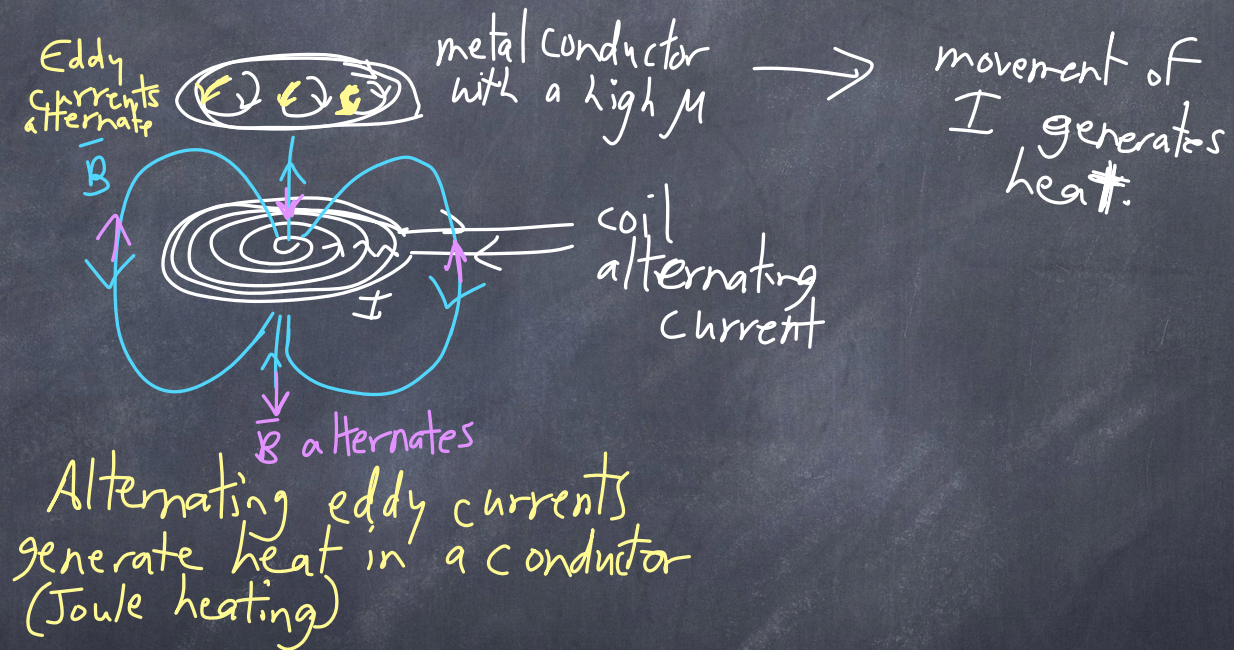 Eddy
currents
alternate
B
metal conductor
with a high μ
movement of
I generates
heat.
coil
alternating
current
I
B alternates
Alternating eddy currents
generate heat in a conductor
(Joule heating)